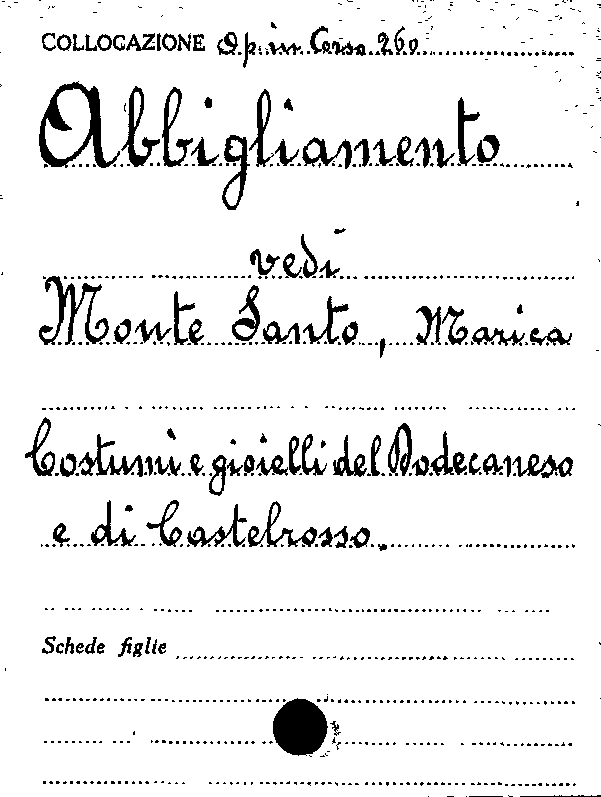 COLLOCAZIONE Op. in Corso 260
Abbigliamento
vedi
Monte Santo, Marica
Costumi e gioielli del Dodecaneso
e di Castelrosso.
Schede figlie